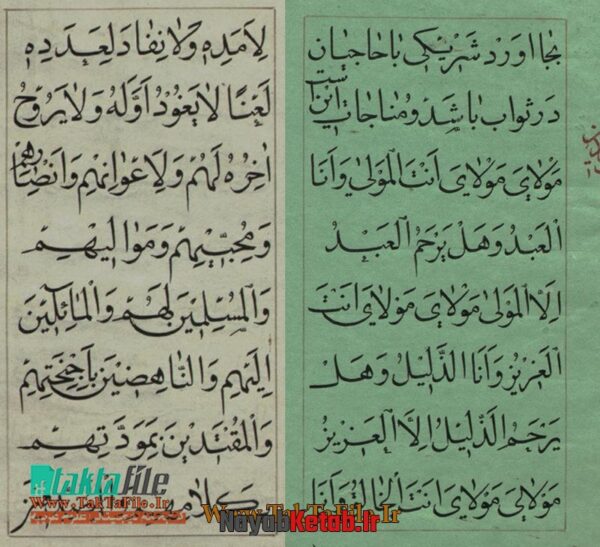 بجا اورد شریکی با حاجیان
در ثواب باشد و مناجات این است
مَوْلایَ مَوْلایَ اَنْتَ الْمَوْلیٰ وَاَنَا
الْعَبْدُ وَهَلْ یَرْحَمُ الْعَبْدُ
اِلَّا الْمَوْلیٰ مَوْلایَ مَوْلایَ اَنْتَ
الْعَزیزُ وَاَنَا الذَّلیلُ وَهَلْ
یَرْحَمُ الذَّلیلُ اِلَّا الْعَزیزُ
مَوْلایَ مَوْلایَ اَنْتَ الْخالِقُ وَاَنَا
لِاَمَدِهِ وَلا نِفادَ لِعَدَدِهِ
لَعْنًا لا یَعُوْدُ اَوَّلُهُ وَلا یَرُوْحُ
اٰخِرُهُ لَهُمْ وَلِاَعْوانِهِمْ وَاَنْصٰارِهِمْ
وَمُحِبّیهِمْ وَمَوالیهِمْ
وَالْمُسْلِمینَ لَهُمْ وَالْمٰائِلینَ
اِلَیْهِمْ وَالنّٰاهِضینَ بِاَجْنِحَتِهِمْ
وَالْمُقْتَدینَ بِمَوَدَّتِهِمْ
taktafile
Www.TakTaFile.Ir
Www.TakTaFile.Ir
NayabKetab.Ir